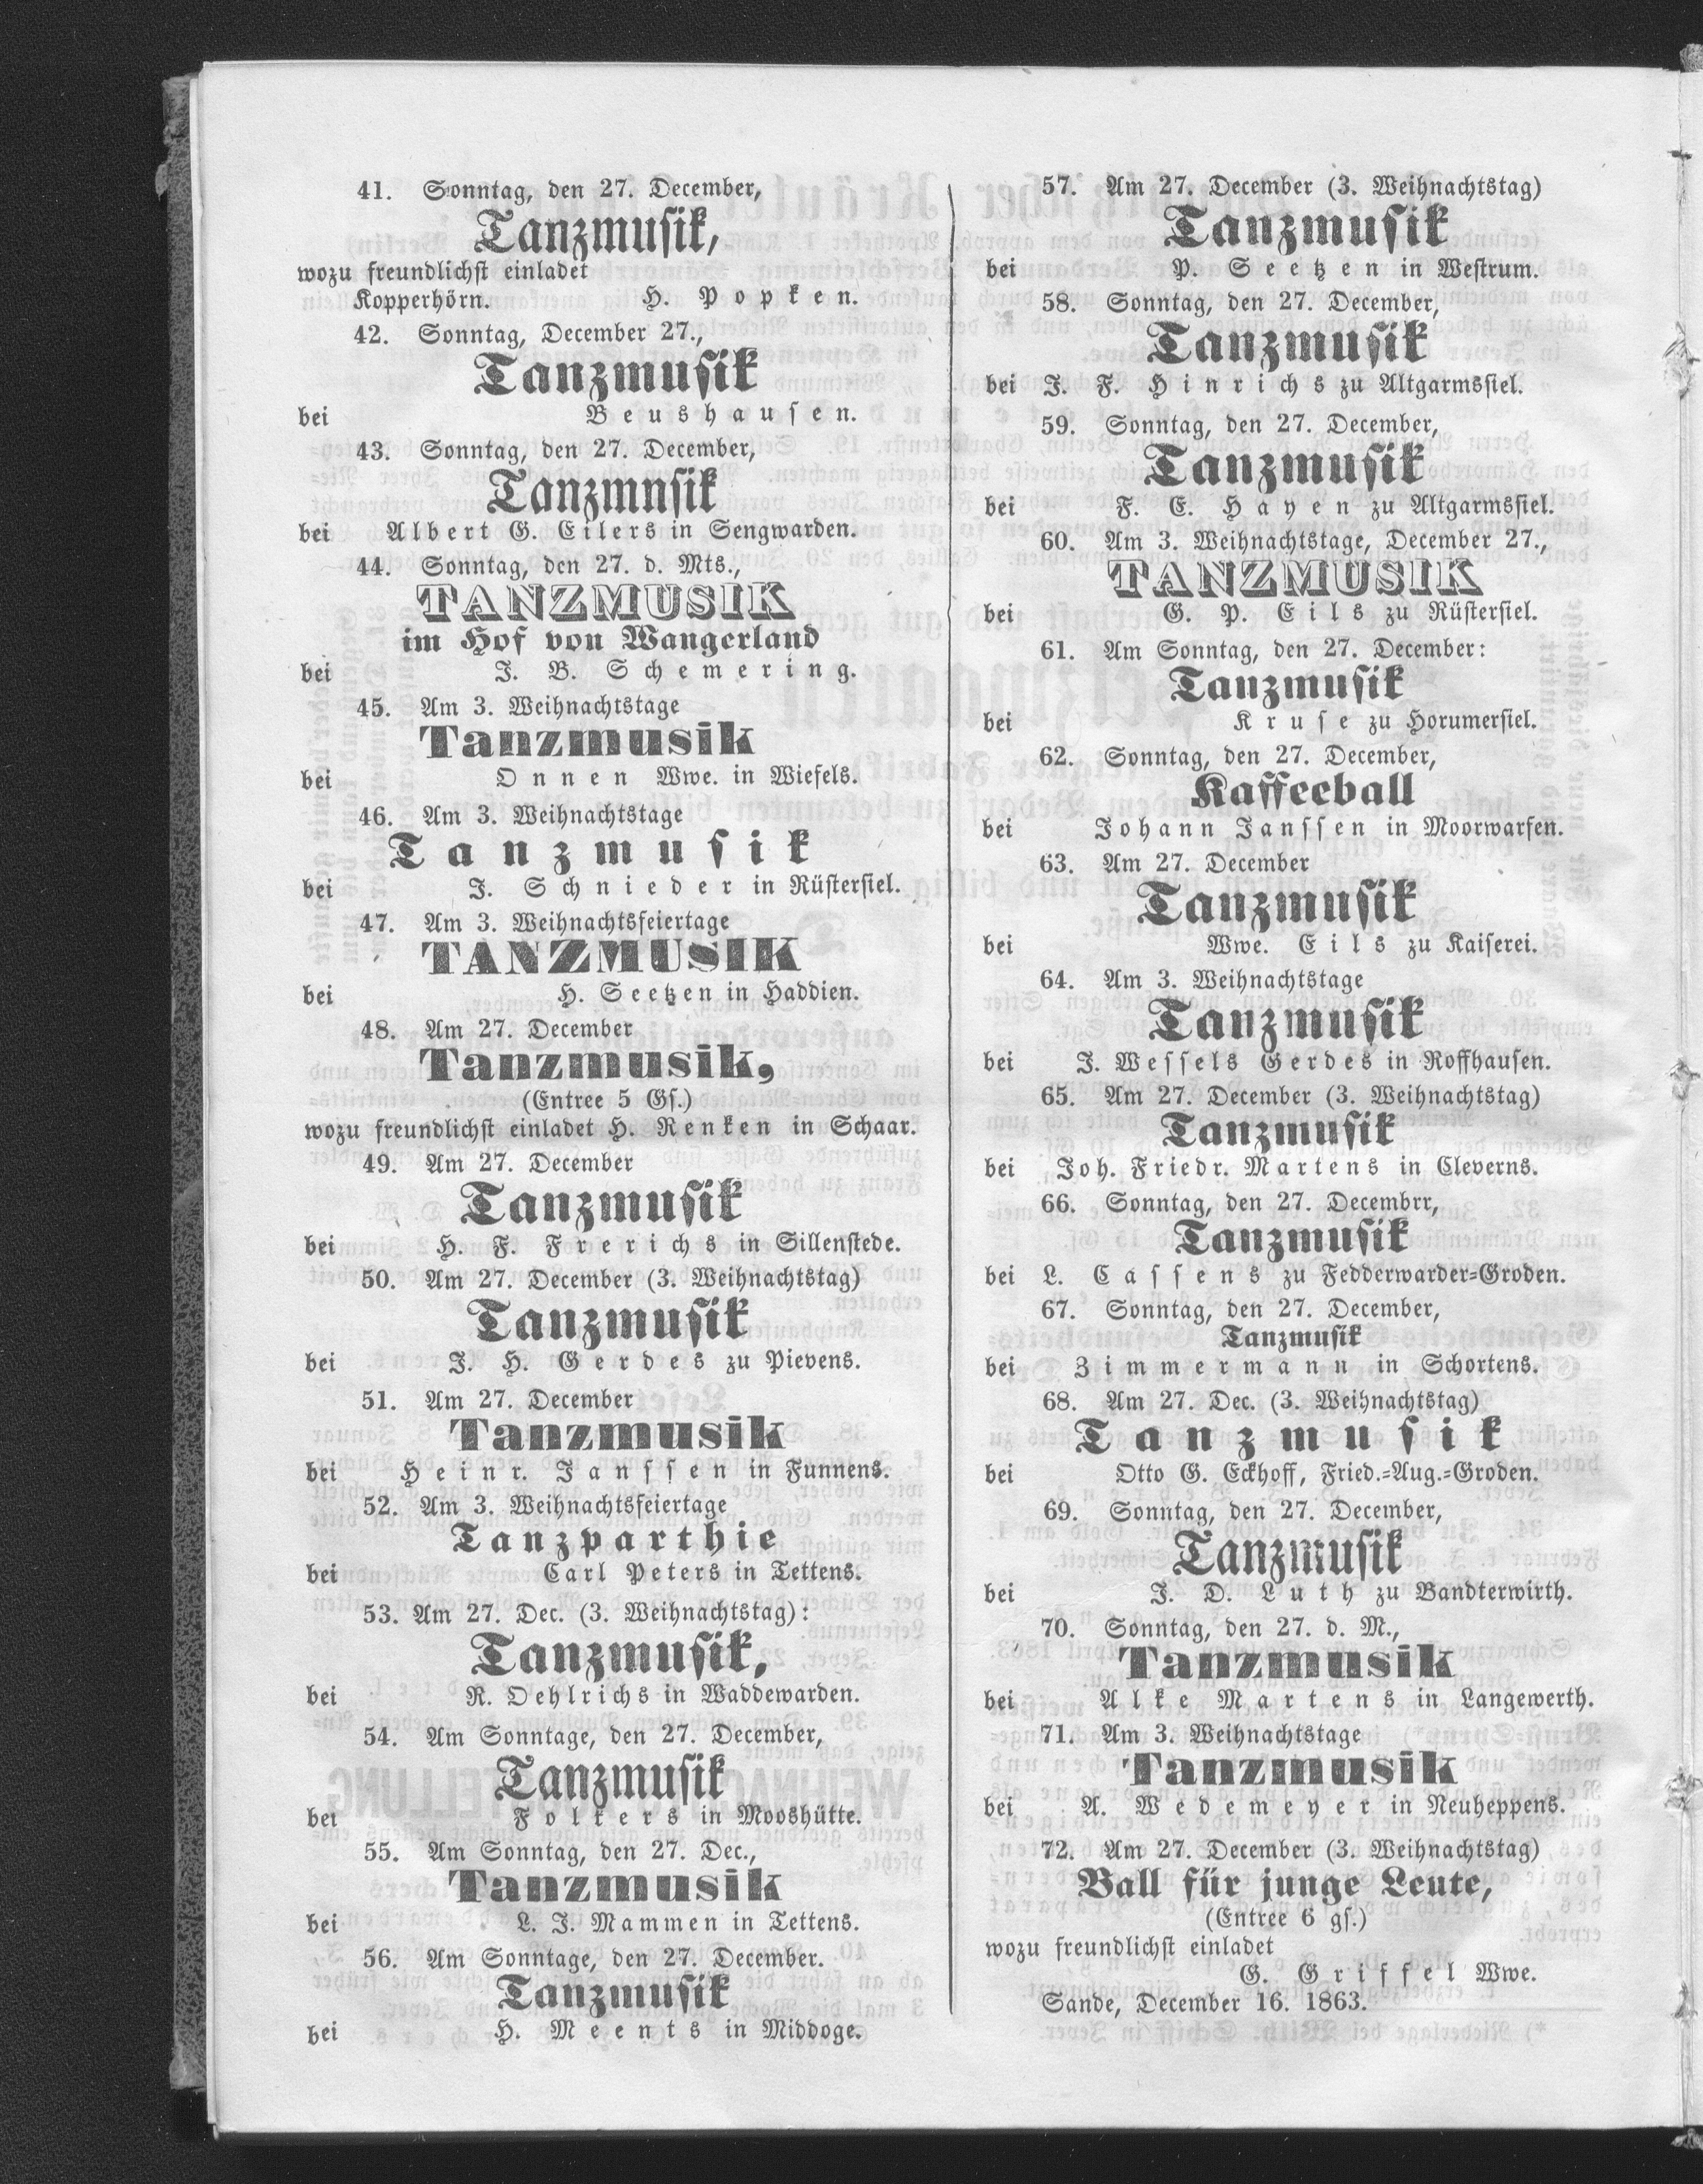 41. Sonntag, den 27. December,
Tanzmusik,
wozu freundlichst einladet
Kopperhörn. H. Popken.
42. Sonntag, December 27.,
Tanzmusik
bei Beushausen.
43. Sonntag, den 27. December,
Tanzmnsik
bei Albert G. Eilers in Sengwarden.
44. Sonntag, den 27. d. Mts.,
TANZMUSIK
im Hof von Wangerland
bei J. B. Schemering.
45. Am 3. Weihnachtstage
Tanzmusik
bei Onnen Wwe. in Wiefels.
46. Am 3. Weihnachtstage
Tanzmusik
bei J. Schnieder in Rüstersiel.
47. Am 3. Weihnachtsfeiertage
TANZMUSIK
bei H. Seetzen in Haddien.
48. Am 27. December
Tanzmusik,
(Entree 5 Gs.)
wozu freundlichst einladet H. Renken in Schaar.
49. Am 27. December
Tanzmusik
bei H. F. Frerichs in Sillenstede.
50. Am 27. December (3. Weihnachtstag)
Tanzmusik
bei J. H. Gerdes zu Pievens.
51. Am 27. December
Tanzmusik
bei Heinr. Janssen in Funnens.
52. Am 3. Weihnachtsfeiertage
Tanzparthie
bei Carl Peters in Tettens.
53. Am 27. Dec. (3. Weihnachtstag):
Tanzmusik,
bei R. Oehlrichs in Waddewarden.
54. Am Sonntage, den 27. December,
Tanzmusik
bei Folkers in Mooshütte.
55. Am Sonntag, den 27. Dec.,
Tanzmusik
bei L. J. Mammen in Tettens.
56. Am Sonntage, den 27. December.
Tanzmusik
bei H. Meents in Middoge.
57. Am 27. December (3. Weihnachtstag)
Tanzmusik
bei P. Seetzen in Westrum.
58. Sonntag, den 27. December,
Tanzmusik
bei J. F. Hinrichs zu Altgarmssiel.
59. Sonntag, den 27. December,
Tanzmusik
bei F. E. Hayen zu Altgarmssiel.
60. Am 3. Weihnachtstage, December 27.,
TANZMUSIK
bei G. P. Eils zu Rüstersiel.
61. Am Sonntag, den 27. December:
Tanzmusik
bei Kruse zu Horumersiel.
62. Sonntag, den 27. December,
Kaffeeball
bei Johann Janssen in Moorwarfen.
63. Am 27. December
Tanzmusik
bei Wwe. Eils zu Kaiserei.
64. Am 3. Weihnachtstage
Tanzmusik
bei J. Wessels Gerdes in Roffhausen.
65. Am 27. December (3. Weihnachtstag)
Tanzmusik
bei Joh. Friedr. Martens in Cleverns.
66. Sonntag, den 27. Decembrr,
Tanzmusik
bei L. Cassens zu Fedderwarder-Groden.
67. Sonntag, den 27. December,
Tanzmusik
bei Zimmermann in Schortens.
68. Am 27. Dec. (3. Weihnachtstag)
Tanzmusik
bei Otto G. Eckhoff, Fried.-Aug.-Groden.
69. Sonntag, den 27. December,
Tanzmusik
bei J. D. Luth zu Bandterwirth.
70. Sonntag, den 27. d. M.,
Tanzmusik
bei Alke Martens in Langewerth.
71. Am 3. Weihnachtstage
Tanzmusik
bei A. Wedemeyer in Neuheppens.
72. Am 27. December (3. Weihnachtstag)
Ball für junge Leute,
(Entree 6 gs.)
wozu freundlichst einladet
G. Griffel Wwe.
Sande, December 16. 1863.